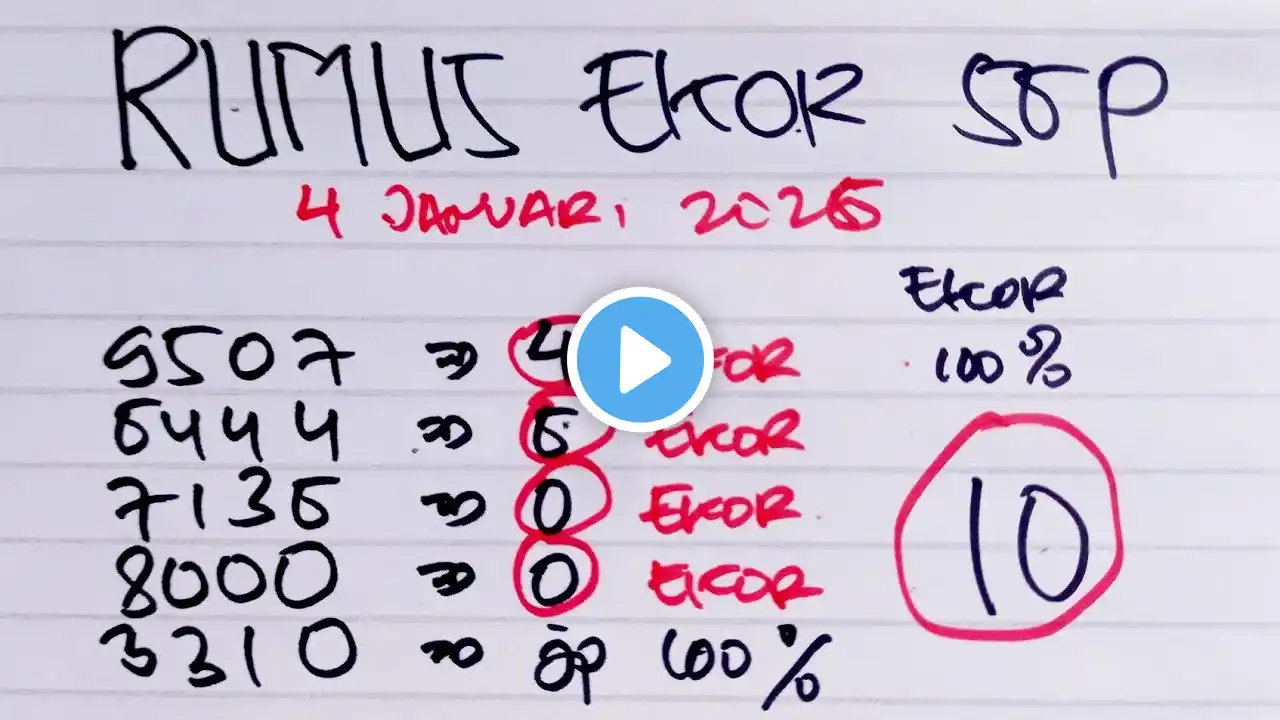 RUMUS EKOR SGP
4 JANUARI 2025
EKOR
100%
9507 => 4 EKOR
6444 => 6 EKOR
7136 => 0 EKOR
8000 => 0 EKOR
3310 => 100%
10